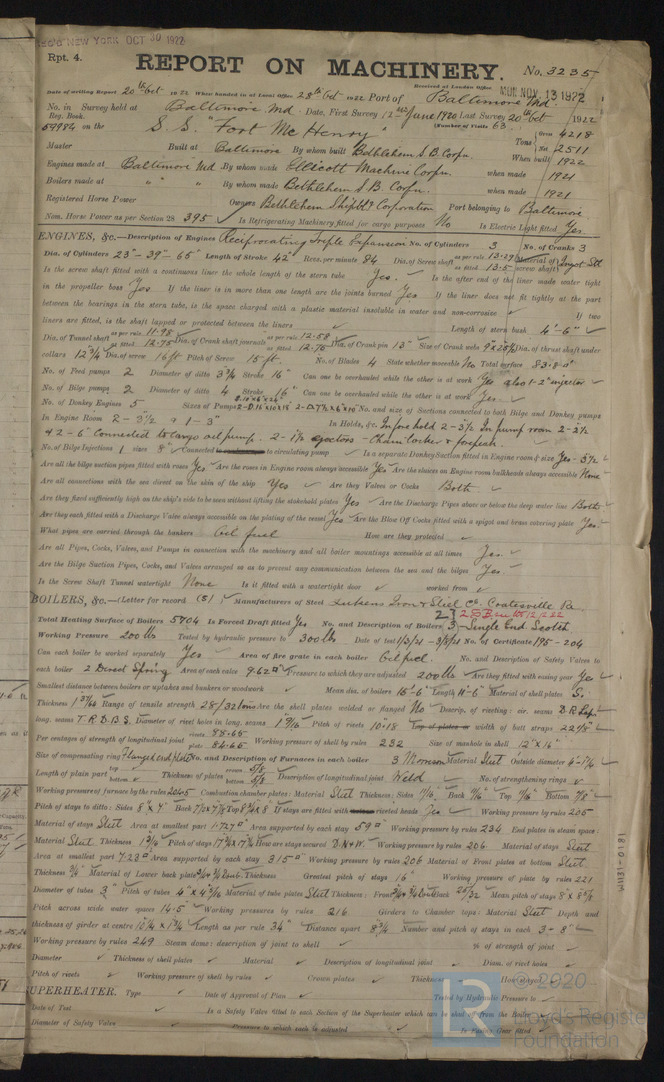 Rec'd NEW YORK OCT 30 1922
Rpt. 4.
REPORT ON MACHINERY.
No. 3235
Received at London Office MON NOV. 13 1922
Date of writing Report 20th Oct 1922 When handed in at Local Office 28th Oct 1922 Port of Baltimore Md.
No. in Survey held at Baltimore Md. Date, First Survey 12th June 1920 Last Survey 20th Oct 1922
Reg. Book. (Number of Visits 63
59984 on the S.S. "Fort McHenry" Tons Gross 4218 Net 2511
Master Built at Baltimore By whom built Bethlehem S.B. Corpn. When built 1922
Engines made at Baltimore Md By whom made Ellicott Machine Corpn. when made 1921
Boilers made at " " By whom made Bethlehem S.B. Corpn. when made 1921
Registered Horse Power Owners Bethlehem Shipbld Corporation Port belonging to Baltimore
Nom. Horse Power as per Section 28 395 Is Refrigerating Machinery fitted for cargo purposes No Is Electric Light fitted Yes.
ENGINES, &c.—Description of Engines Reciprocating Triple Expansion No. of Cylinders 3 No. of Cranks 3
Dia. of Cylinders 23" - 39" - 65" Length of Stroke 42" Revs. per minute 84 Dia. of Screw shaft as per rule 13.29 as fitted 13.5 Material of screw shaft Ingot Stl
Is the screw shaft fitted with a continuous liner the whole length of the stern tube Yes. Is the after end of the liner made water tight
in the propeller boss Yes If the liner is in more than one length are the joints burned Yes If the liner does not fit tightly at the part
between the bearings in the stern tube, is the space charged with a plastic material insoluble in water and non-corrosive If two
liners are fitted, is the shaft lapped or protected between the liners Length of stern bush 4'-6"
Dia. of Tunnel shaft as per rule 11.98 as fitted 12.75 Dia. of Crank shaft journals as per rule 12.58 as fitted 12.75 Dia. of Crank pin 13" Size of Crank webs Dia. of thrust shaft under
collars 12 3/4 Dia. of screw 16 ft Pitch of Screw 15 ft. No. of Blades 4 State whether moveable No Total surface 83.8
No. of Feed pumps 2 Diameter of ditto 3 3/4 Stroke 16" Can one be overhauled while the other is at work Yes also 1-2" injector
No. of Bilge pumps 2 Diameter of ditto 4 Stroke 16" Can one be overhauled while the other is at work Yes.
No. of Donkey Engines 5 Sizes of Pumps No. and size of Suctions connected to both Bilge and Donkey pumps
In Engine Room 2 - 3 1/2 & 1 - 3" In Holds, &c. In fore hold 2 - 3 1/2 In pump room 2 - 2 1/2
& 2 - 6" connected to cargo oil pump - 2 - 1 1/2 ejectors - Chain locker & forepeak.
No. of Bilge Injections 1 sizes 8" Connected to circulating pump Is a separate Donkey Suction fitted in Engine room & size Yes - 3 1/2
Are all the bilge suction pipes fitted with roses Yes Are the roses in Engine room always accessible Yes Are the sluices on Engine room bulkheads always accessible None
Are all connections with the sea direct on the skin of the ship Yes Are they Valves or Cocks Both
Are they fixed sufficiently high on the ship's side to be seen without lifting the stokehold plates Yes Are the Discharge Pipes above or below the deep water line Both
Are they each fitted with a Discharge Valve always accessible on the plating of the vessel Yes Are the Blow Off Cocks fitted with a spigot and brass covering plate Yes.
What pipes are carried through the bunkers Oil fuel How are they protected
Are all Pipes, Cocks, Valves, and Pumps in connection with the machinery and all boiler mountings accessible at all times Yes.
Are the Bilge Suction Pipes, Cocks, and Valves arranged so as to prevent any communication between the sea and the bilges Yes
Is the Screw Shaft Tunnel watertight None Is it fitted with a watertight door worked from
BOILERS, &c.—(Letter for record (S) Manufacturers of Steel Lukens Iron & Steel Co. Coatesville Pa.
Total Heating Surface of Boilers 5704 Is Forced Draft fitted Yes No. and Description of Boilers 3 - Single End Scotch
Working Pressure 200 lbs Tested by hydraulic pressure to 300 lbs Date of test 1/3/21 - 3/5/21 No. of Certificate 195 - 204
Can each boiler be worked separately Yes Area of fire grate in each boiler Oil fuel. No. and Description of Safety Valves to
each boiler 2 Direct Spring Area of each valve 9.62 Pressure to which they are adjusted 200 lbs Are they fitted with easing gear Yes
Smallest distance between boilers or uptakes and bunkers or woodwork Mean dia. of boilers 15'-6" Length 11'-6" Material of shell plates S.
Thickness 1 3/64 Range of tensile strength 28/32 tons Are the shell plates welded or flanged No Descrip. of riveting: cir. seams D.R. Lap
long. seams T.R.D.B.S. Diameter of rivet holes in long. seams 1 9/16 Pitch of rivets 10.18 width of butt straps 22 1/8"
Per centages of strength of longitudinal joint rivets 98.65 plate 84.65 Working pressure of shell by rules 232 Size of manhole in shell 12" x 16"
Size of compensating ring Flanged end plate No. and Description of Furnaces in each boiler 3 Morison Material Steel Outside diameter 4'-1 1/4
Length of plain part top bottom Thickness of plates crown 5/8 bottom 5/8 Description of longitudinal joint Weld No. of strengthening rings
Working pressure of furnace by the rules 204.5 Combustion chamber plates: Material Steel Thickness: Sides 11/16 Back 11/16 Top 11/16 Bottom 7/8
Pitch of stays to ditto: Sides 8" x 9" Back Top If stays are fitted with riveted heads Yes Working pressure by rules 205
Material of stays Steel Area at smallest part 1.727 Area supported by each stay 59 Working pressure by rules 234 End plates in steam space:
Material Steel Thickness Pitch of stays How are stays secured D.N.&W. Working pressure by rules 206 Material of stays Steel
Area at smallest part 7.23 Area supported by each stay 315 Working pressure by rules 206 Material of Front plates at bottom Steel
Thickness Material of Lower back plate Thickness Greatest pitch of stays 16" Working pressure of plate by rules 221
Diameter of tubes 3" Pitch of tubes Material of tube plates Steel Thickness: Front Back 25/32 Mean pitch of stays
Pitch across wide water spaces 14.5 Working pressures by rules 216 Girders to Chamber tops: Material Steel Depth and
thickness of girder at centre Length as per rule 34" Distance apart 8 3/4 Number and pitch of stays in each 3 - 8"
Working pressure by rules 249 Steam dome: description of joint to shell % of strength of joint
Diameter Thickness of shell plates Material Description of longitudinal joint Diam. of rivet holes
Pitch of rivets Working pressure of shell by rules Crown plates Thickness How stayed
SUPERHEATER. Type Date of Approval of Plan Tested by Hydraulic Pressure to
Date of Test Is a Safety Valve fitted to each Section of the Superheater which can be shut off from the Boiler
Diameter of Safety Valve Pressure to which each is adjusted Is Easing Gear fitted
W1131-0181
LR
© 2020
Lloyd's Register
Foundation